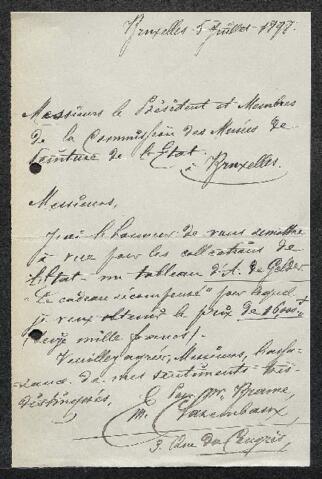 Bruxelles 5 Juillet 1897.
Messieurs le Président et Membres
de la Commission des Musées de
Peinture de l'Etat
à Bruxelles.
Messieurs,
J'ai l'honneur de vous soumettre
à vice pour les collections de
l'Etat un tableau d'A. de Gelder
"Le cadeau récompensé" pour lequel
je veux obtenir le prix de 16000 f
(seize mille francs).
Veuillez agréer, Messieurs, l'assu-
rance de mes sentiments très
distingués,
Pour Mr.
M.
3. Rue du Congrès